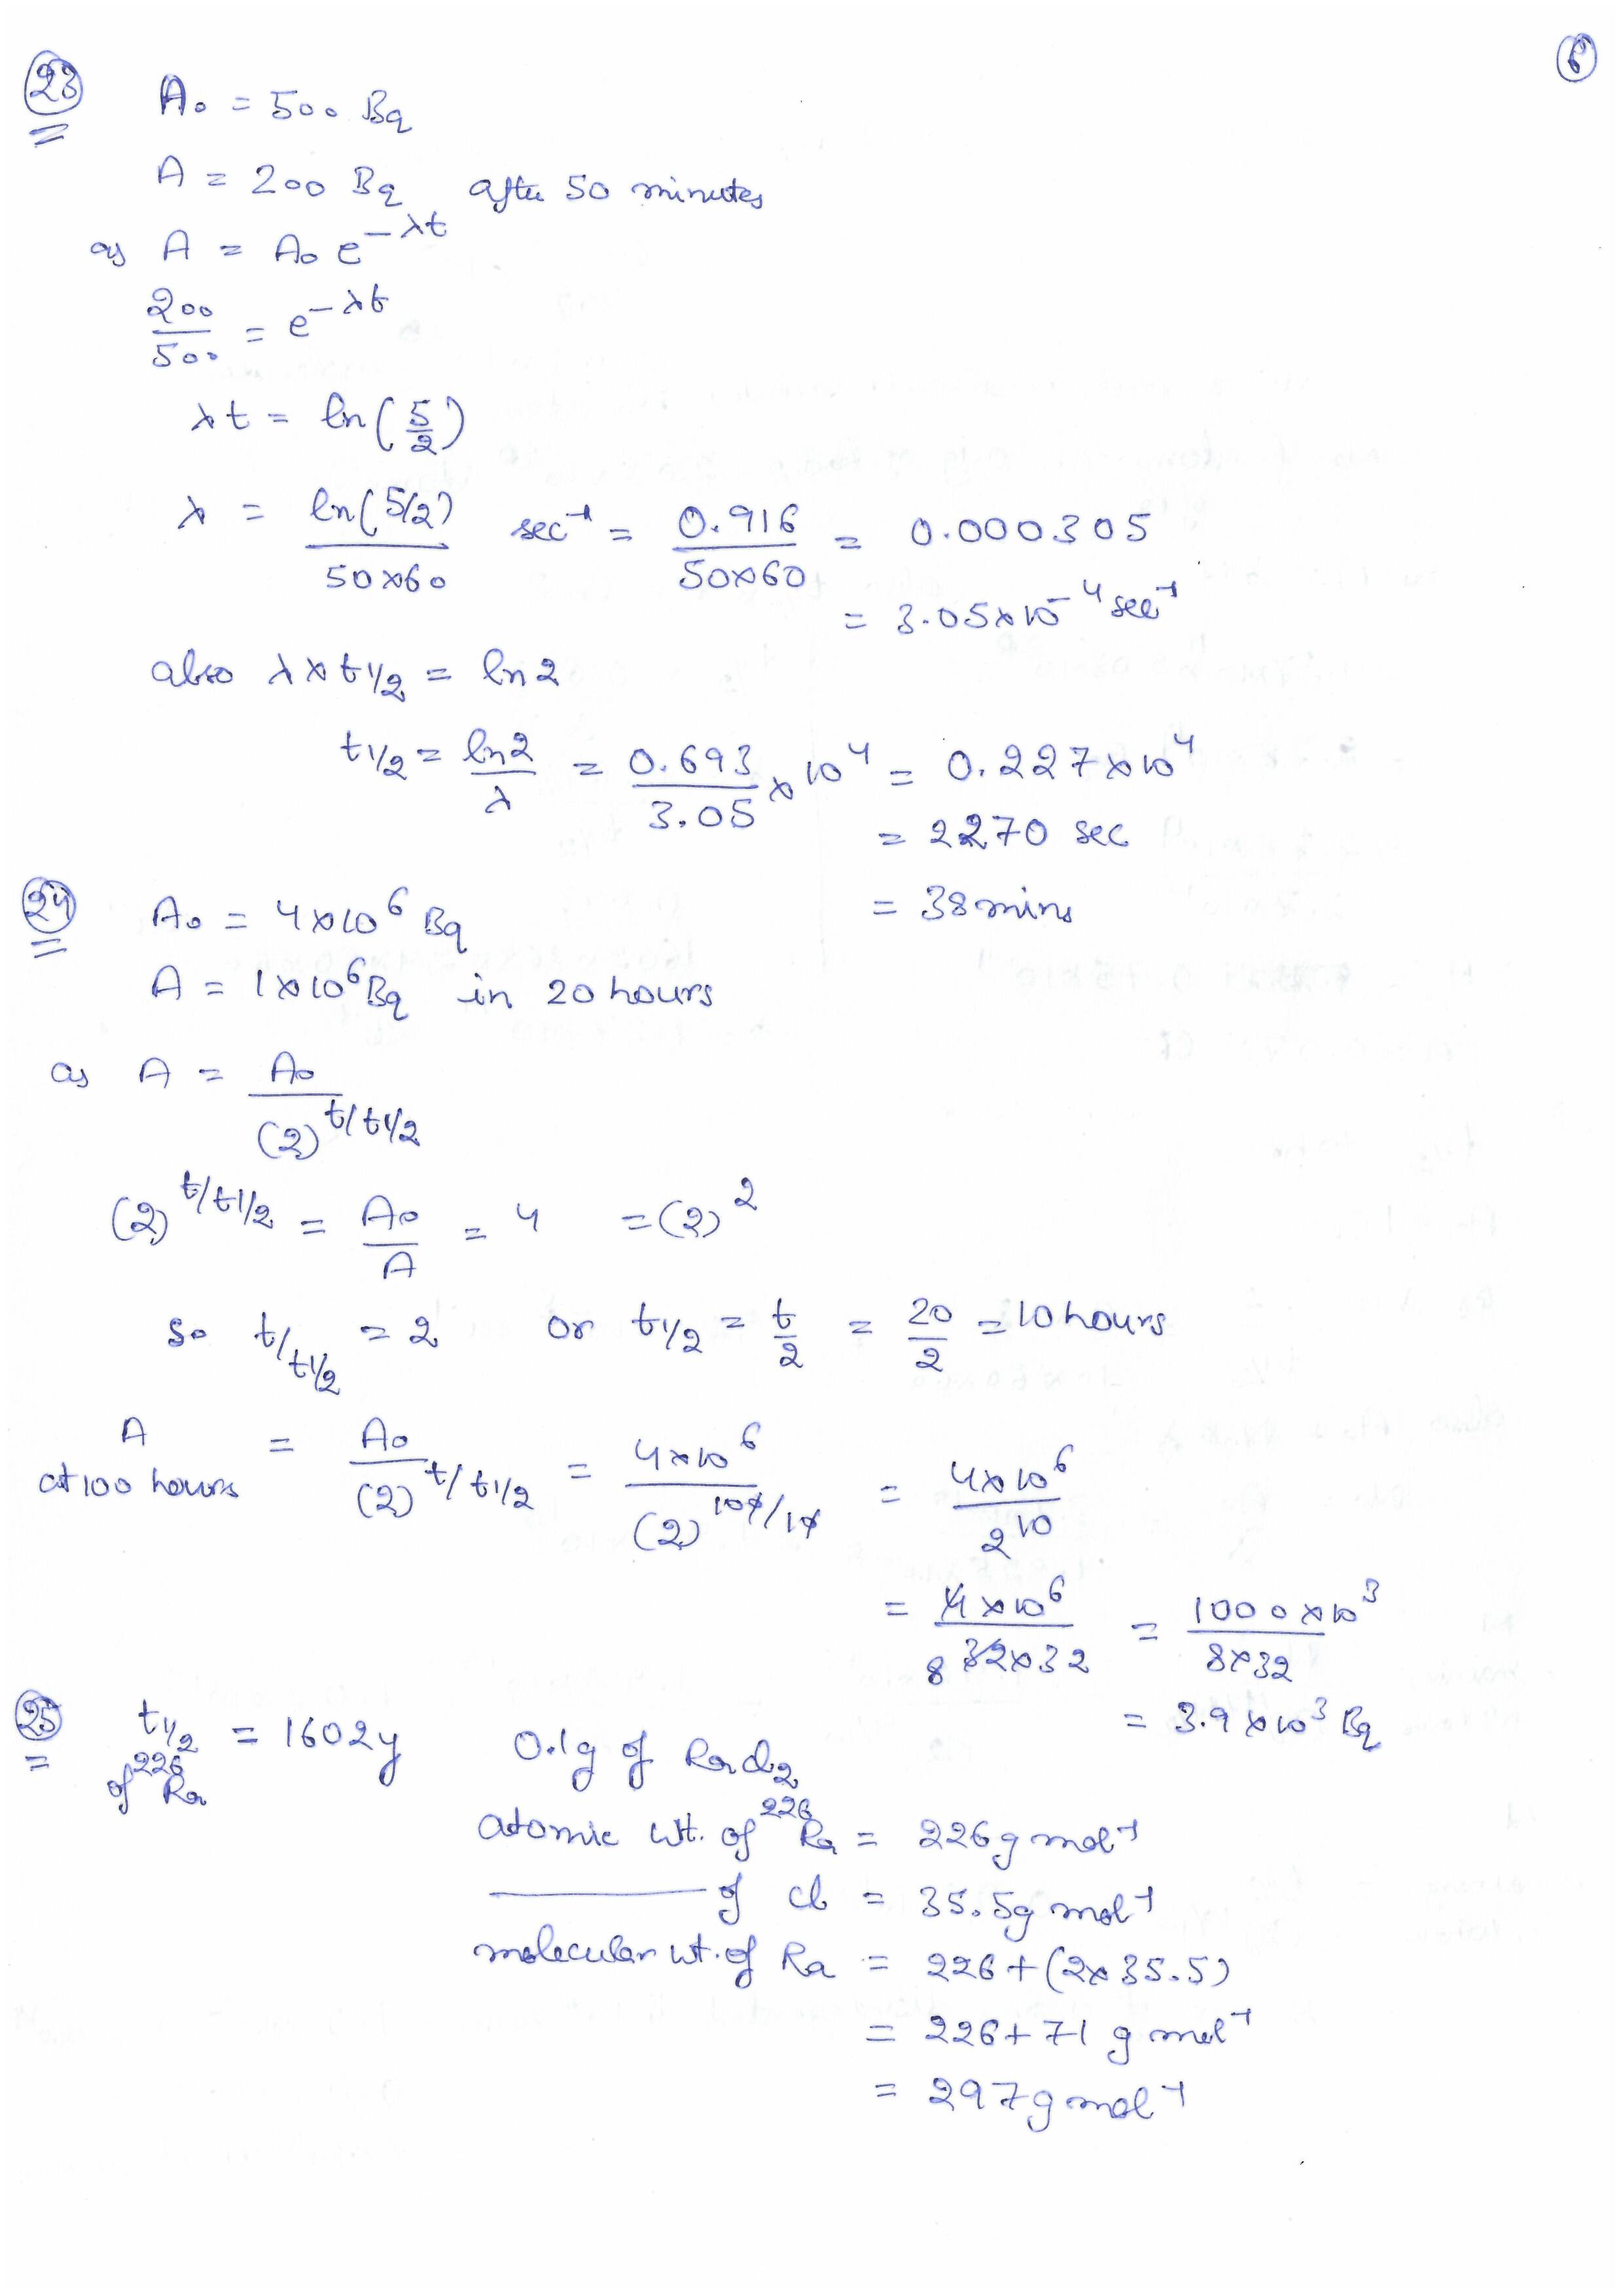 23 6
A₀ = 500 Bq
A = 200 Bq after 50 minutes
as A = A₀ e^(-λt)
200/500 = e^(-λt)
λt = ln(5/2)
λ = ln(5/2)/(50×60) sec⁻¹ = 0.916/(50×60) = 0.000305
= 3.05×10⁻⁴ sec⁻¹
also λ × t1/2 = ln2
t1/2 = ln2/λ = 0.693/3.05 × 10⁴ = 0.227×10⁴
= 2270 sec
= 38 mins
24 A₀ = 4×10⁶ Bq
A = 1×10⁶ Bq in 20 hours
as A = A₀/(2)^(t/t1/2)
(2)^(t/t1/2) = A₀/A = 4 = (2)²
so t/t1/2 = 2 or t1/2 = t/2 = 20/2 = 10 hours
A at 100 hours = A₀/(2)^(t/t1/2) = 4×10⁶/(2)^(100/10) = 4×10⁶/2¹⁰
= 4×10⁶/(32×32) 8 = 1000×10³/(8×32)
= 3.9×10³ Bq
25 t1/2 of ²²⁶Ra = 1602y 0.1g of RaCl₂
atomic wt. of ²²⁶Ra = 226 g mol⁻¹
——— of Cl = 35.5g mol⁻¹
molecular wt. of Ra = 226+(2×35.5)
= 226+71 g mol⁻¹
= 297g mol⁻¹